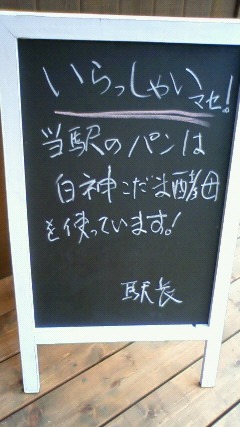 いらっしゃいマセ!
当駅のパンは
白神こだま酵母
を使っています!
駅長